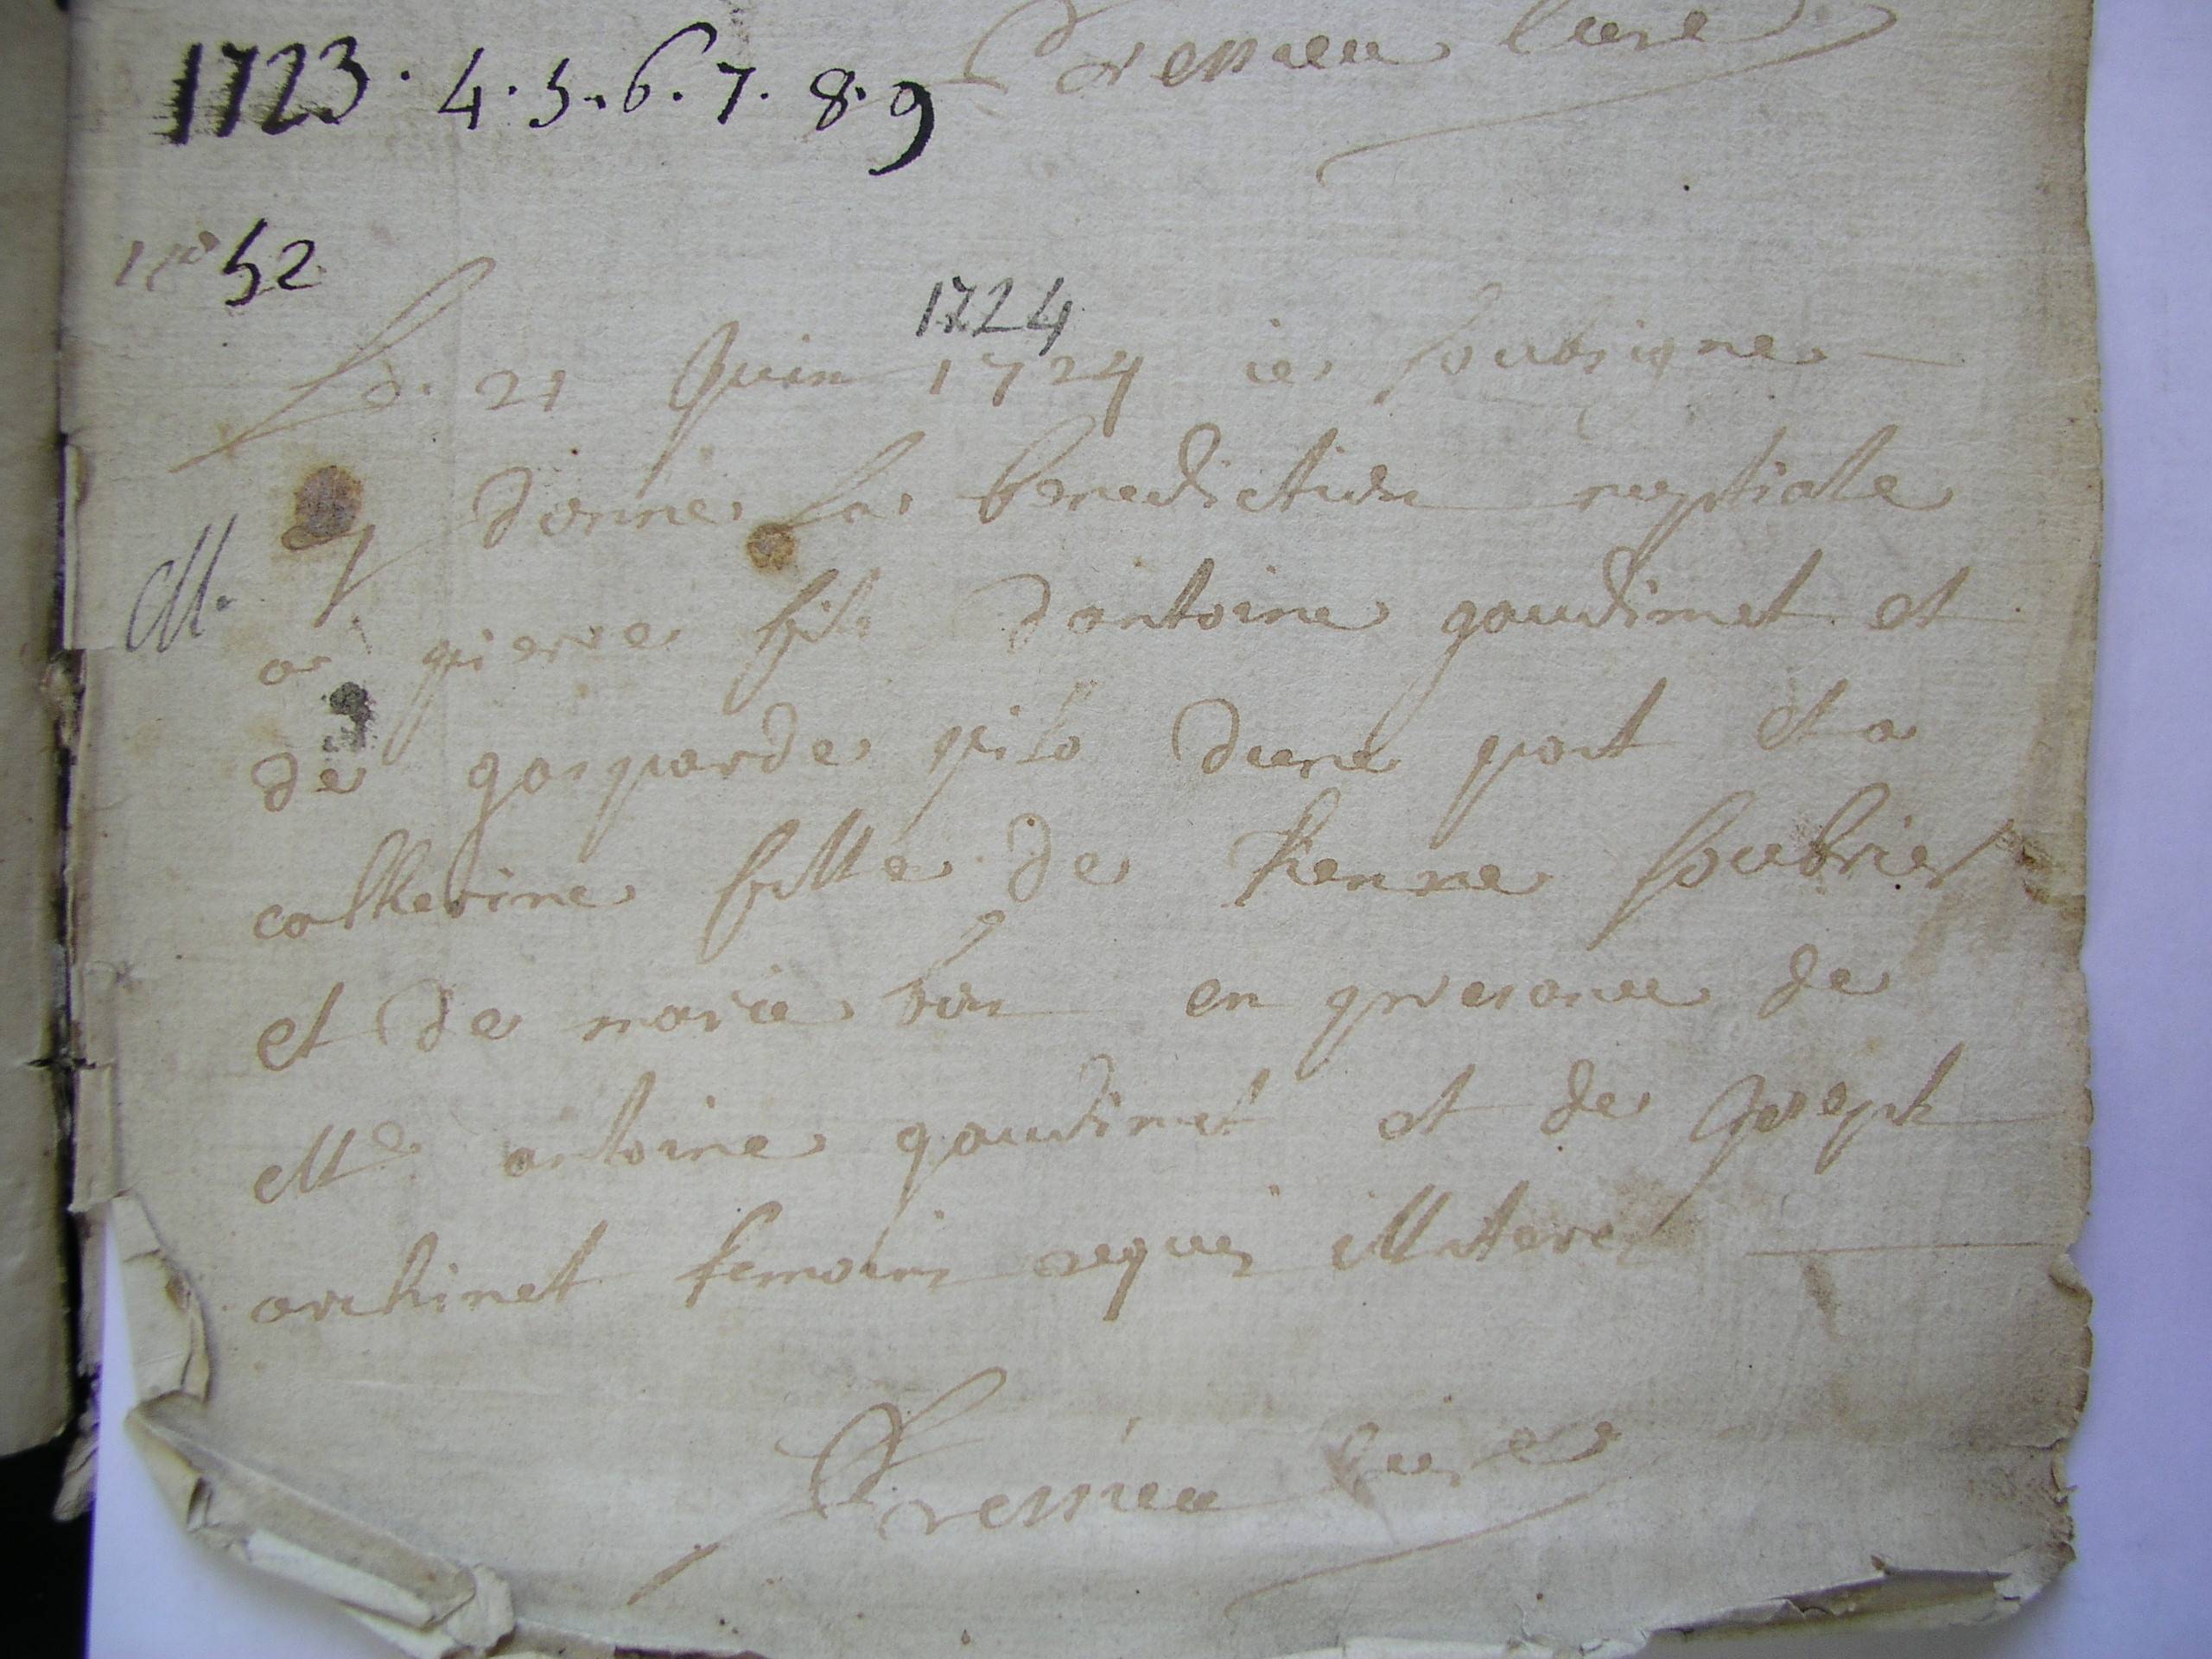 1723. 4. 5. 6. 7. 8. 9 Pressieu Curé
n° 52
1724
Le 21 Juin 1724 ie soubsigne
M. ay donné la benediction nuptiale
a pierre fils d'antoine gaudimet et
de gasparde pilo dune part et a
catherine fille de Pierre soubrier
et de marie bon en presance de
Me antoine gaudimet et de Joseph
archinet temoins requis illiteres
Pressieu Curé